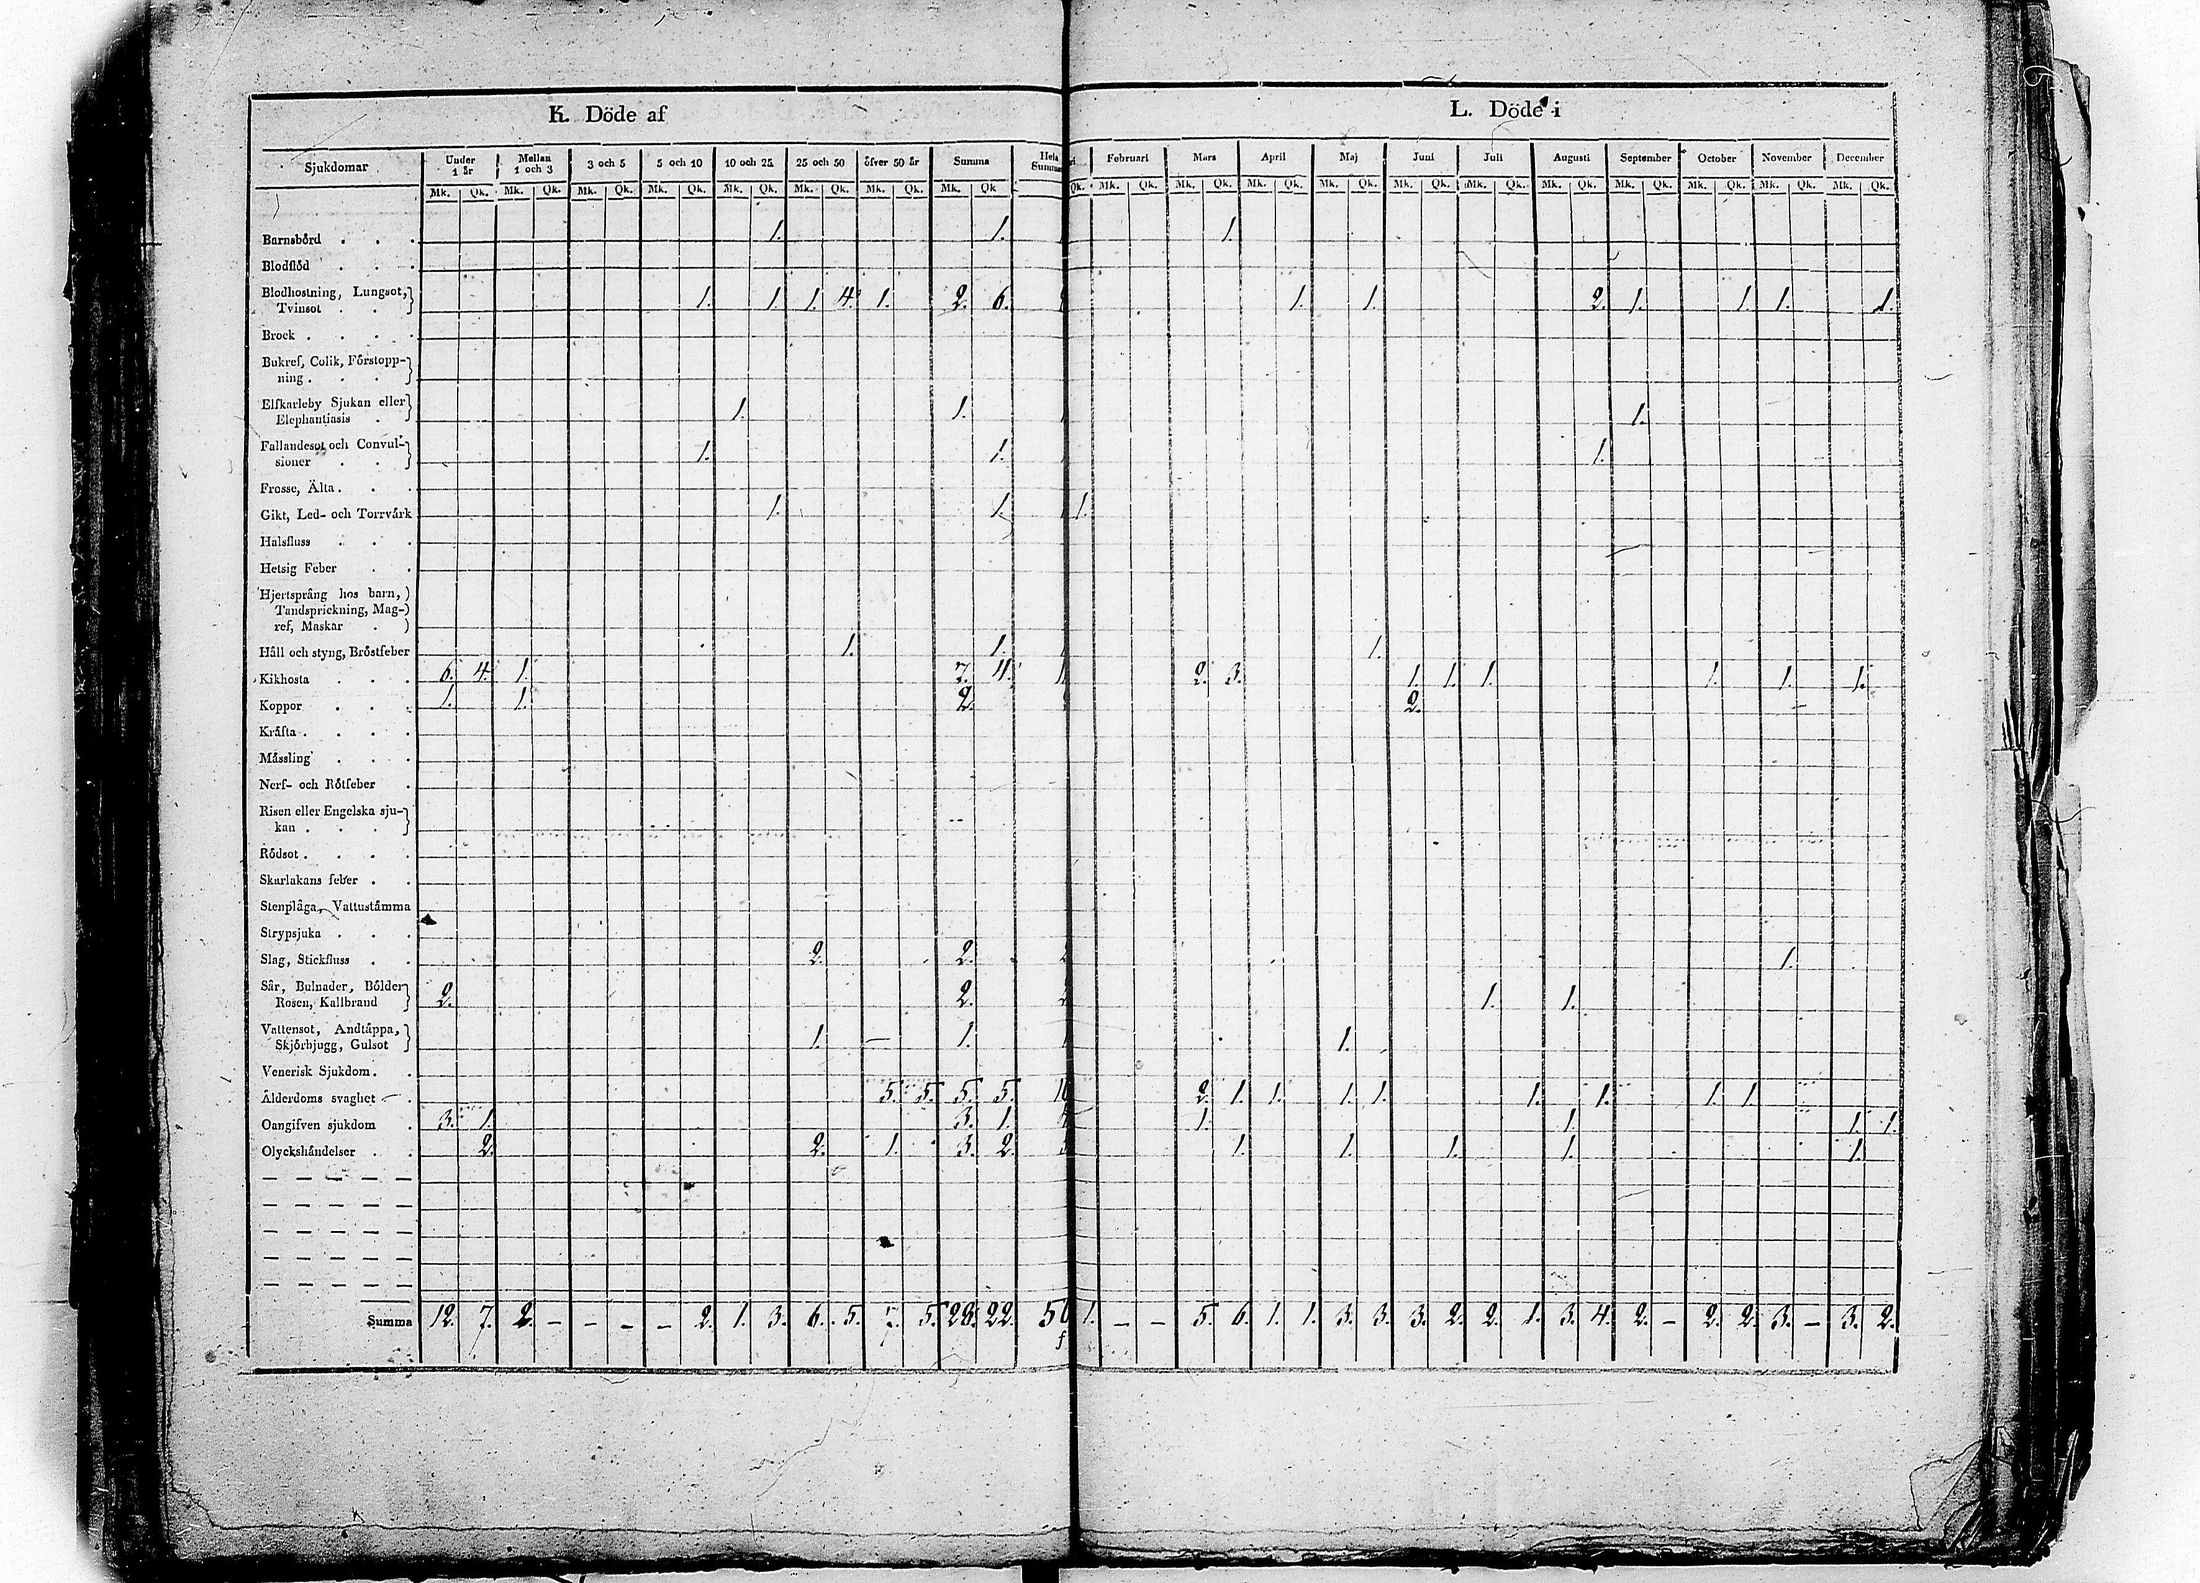 K. Döde af L. Döde i
Sjukdomar Under 1 år Mellan 1 och 3 3 och 5 5 och 10 10 och 25 25 och 50 öfver 50 år Summa Hela Summan Februari Mars April Maj Juni Juli Augusti September October November December
Mk. Qk. Mk. Qk. Mk. Qk. Mk. Qk. Mk. Qk. Mk. Qk. Mk. Qk. Mk. Qk Qk. Mk. Qk. Mk. Qk. Mk. Qk. Mk. Qk. Mk. Qk. Mk. Qk. Mk. Qk. Mk. Qk. Mk. Qk. Mk. Qk. Mk. Qk.
Barnsbörd . . . 1. 1. 1.
Blodflöd . . .
Blodhostning, Lungsot,
Tvinsot . . 1. 1. 1. 4. 1. 2. 6. 1. 1. 2. 1. 1. 1. 1.
Brock . . . .
Bukref, Colik, Förstopp-
ning . . .
Elfkarleby Sjukan eller
Elephantiasis . 1. 1. 1.
Fallandesot och Convul-
sioner . . 1. 1. 1.
Frosse, Älta . . .
Gikt, Led- och Torrvärk 1. 1. 1.
Halsfluss . . .
Hetsig Feber . .
Hjertsprång hos barn,
Tandsprickning, Mag-
ref, Maskar .
Håll och styng, Bröstfeber 1. 1. 1.
Kikhosta . . . 6. 4. 1. 7. 4. 2. 3. 1. 1. 1. 1. 1. 1.
Koppor . . . 1. 1. 2. 2.
Kräfta . . . .
Mässling . . .
Nerf- och Rötfeber .
Risen eller Engelska sju-
kan . . .
Rödsot . . . .
Skarlakans feber . .
Stenplåga, Vattustämma
Strypsjuka . . .
Slag, Stickfluss . . 2. 2. 1.
Sår, Bulnader, Bölder
Rosen, Kallbrand 2. 2. 1. 1.
Vattensot, Andtäppa,
Skjörbjugg, Gulsot 1. — 1. 1.
Venerisk Sjukdom . .
Ålderdoms svaghet . 5. 5. 5. 5. 10 2. 1. 1. 1. 1. 1. 1. 1. 1.
Oangifven sjukdom . 3. 1. 3. 1. 4 1. 1. 1. 1.
Olyckshändelser . . 2. 2. 1. 3. 2. 1. 1. 1. 1. 1.
Summa 12. 7. 2. — — — — 2. 1. 3. 6. 5. 7. 5. 28. 22. 50 1. — — 5. 6. 1. 1. 3. 3. 3. 2. 2. 1. 3. 4. 2. — 2. 2. 3. — 3. 2.